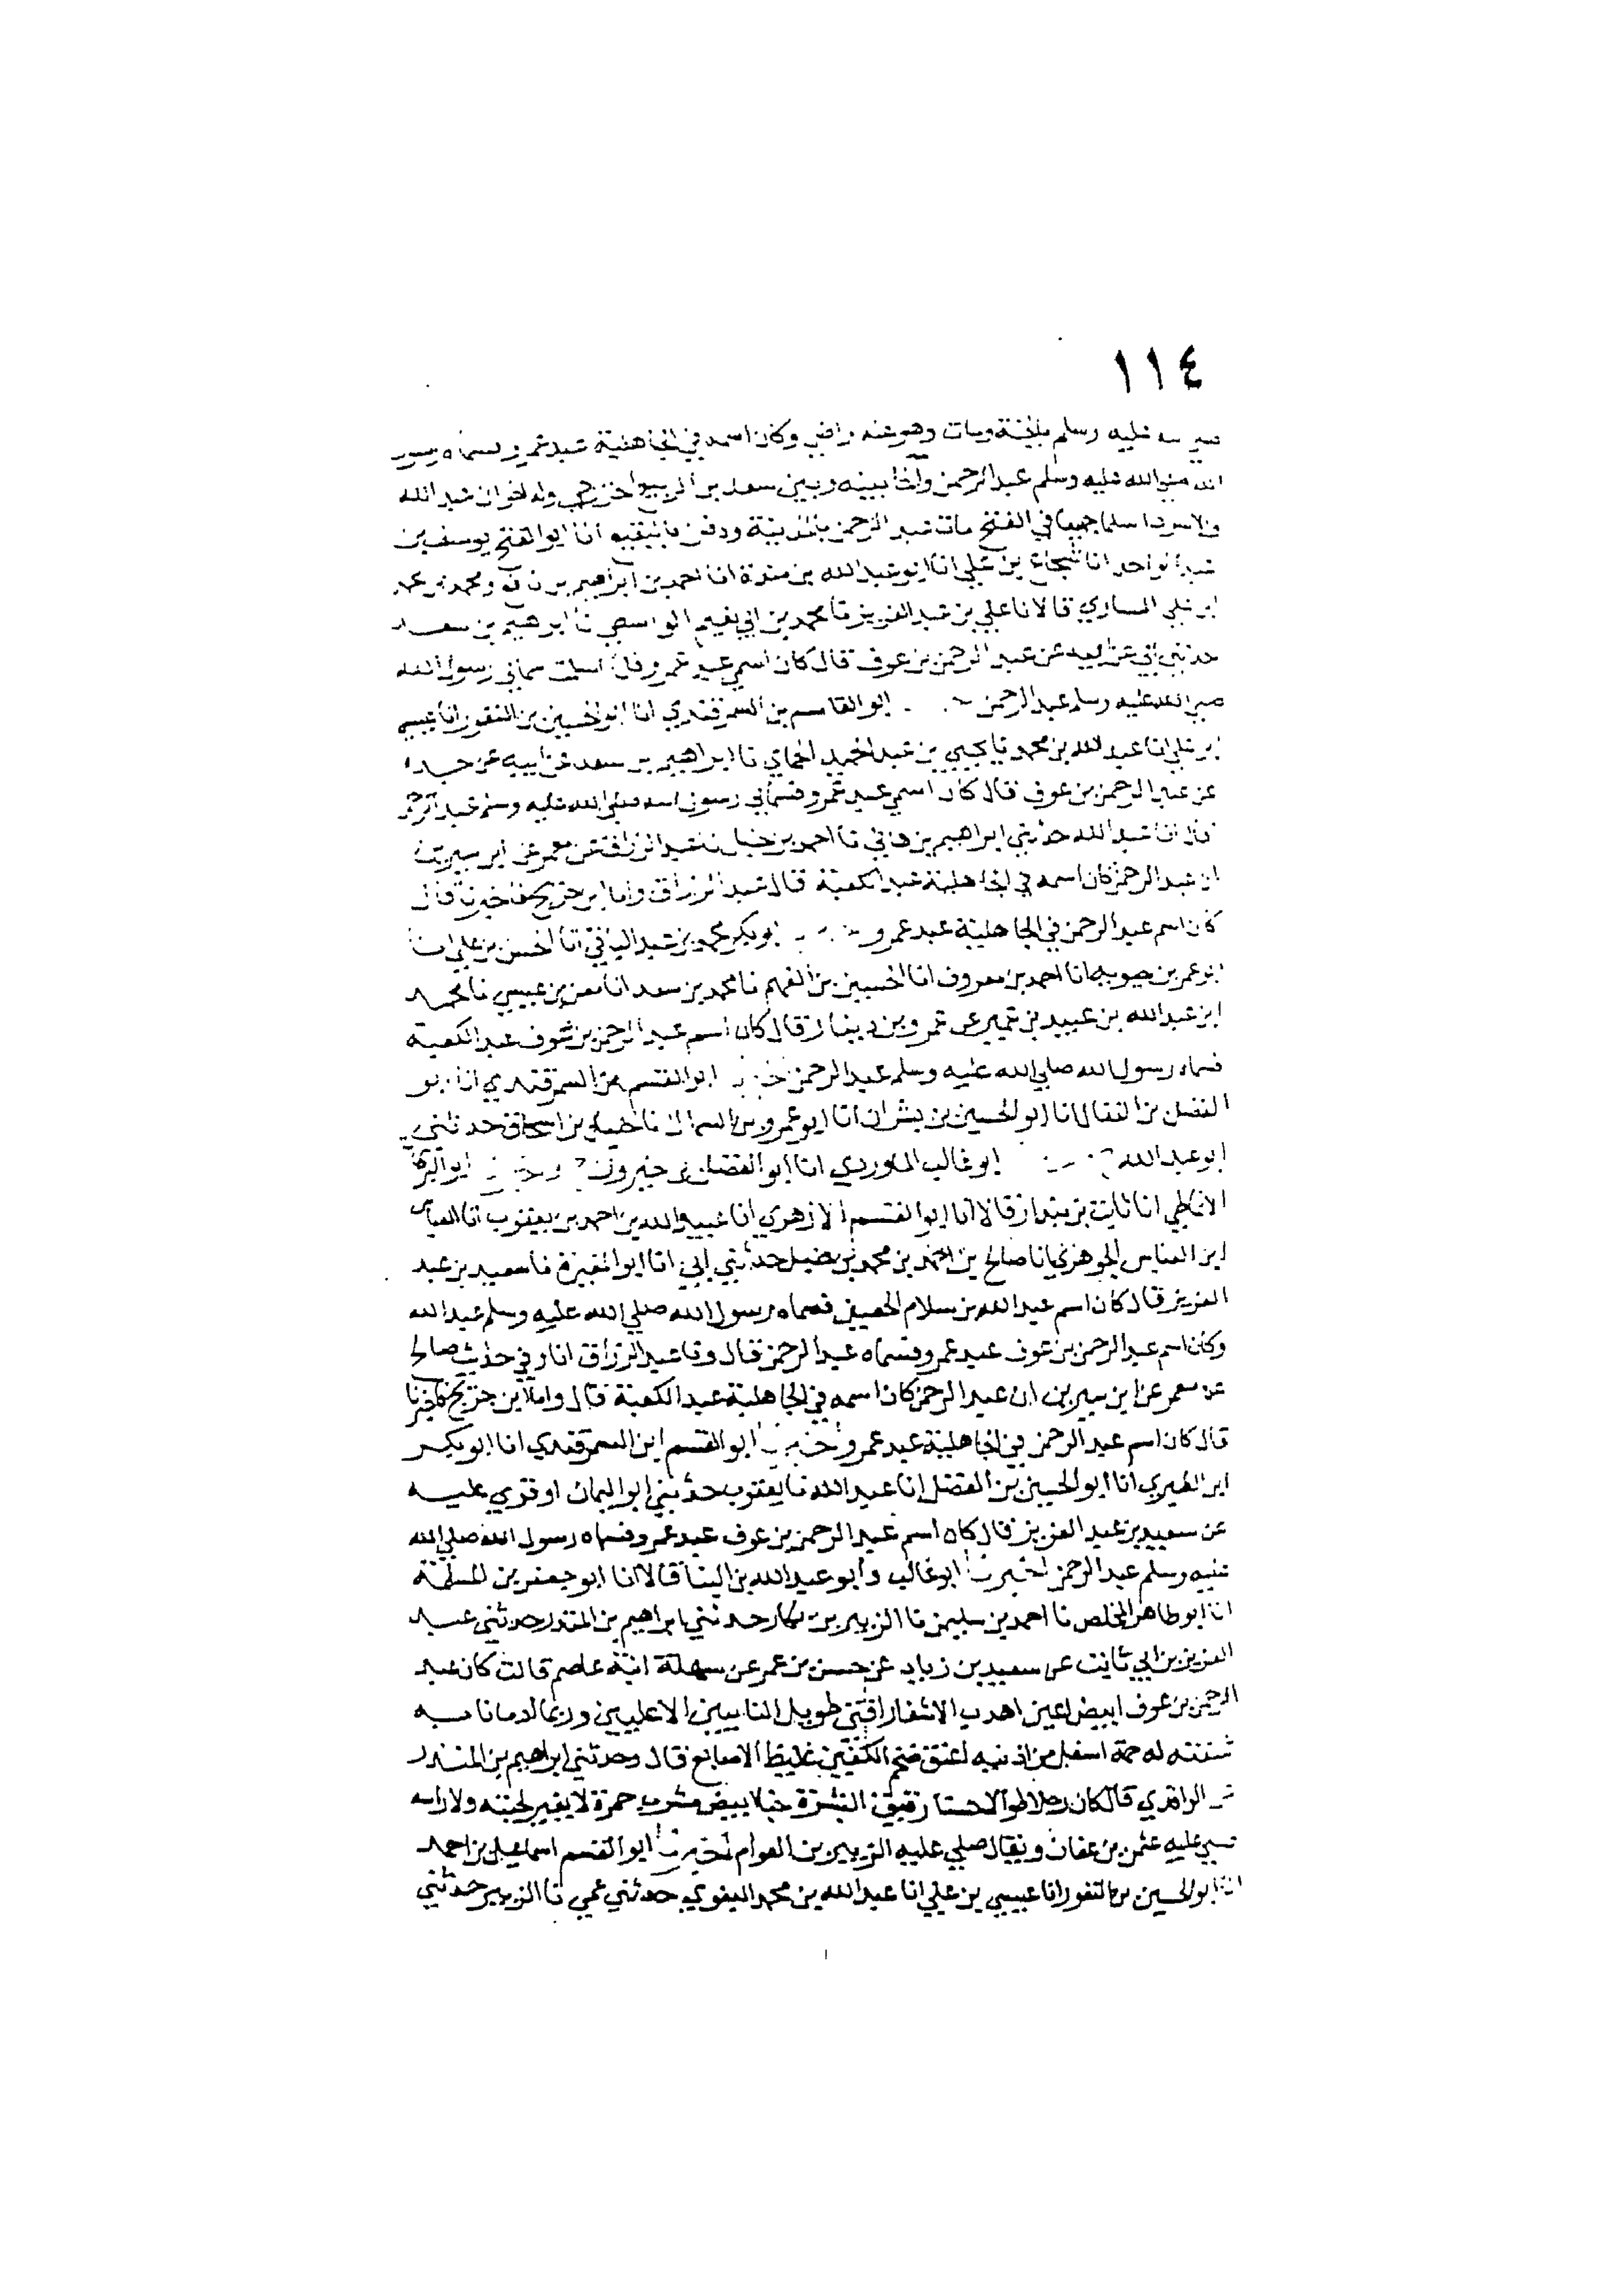 ١١٤
عليه وسلم بالجنة ومات وهو عنه راض وكان اسمه في الجاهلية عبد عمرو فسماه رسول
الله صلى الله عليه وسلم عبد الرحمن وآخا بينه وبين سعد بن الربيع الخزرجي وله اخوان عبد الله
والاسود اسلما جميعا في الفتح مات عبد الرحمن بالمدينة ودفن بالبقيع انا ابو الفتح يوسف بن
عبد الواحد انا شجاع بن علي انا ابو عبد الله بن مندة انا احمد بن ابراهيم بن نافع ومحمد بن محمد
ابن علي قالا نا علي بن عبد العزيز نا محمد بن ابي نعيم الواسطي نا ابرهيم بن سعد
حدثني ابي عن ابيه عن عبد الرحمن بن عوف قال كان اسمي عبد عمرو فلما اسلمت سماني رسول الله
صلى الله عليه وسلم عبد الرحمن ابو القاسم بن السمرقندي انا ابو الحسين بن النقور انا عيسى
ابن علي انا عبد الله بن محمد نا يحيى بن عبد الحميد الحماني نا ابراهيم بن سعد عن ابيه عن جده
عن عبد الرحمن بن عوف قال كان اسمي عبد عمرو فسماني رسول الله صلى الله عليه وسلم عبد الرحمن
قال انا عبد الله حدثني ابراهيم بن هاني نا احمد بن حنبل نا عبد الرزاق عن معمر عن ابن سيرين
ان عبد الرحمن كان اسمه في الجاهلية عبد الكعبة قال عبد الرزاق واما ابن جريج فاخبرنا قال
كان اسم عبد الرحمن في الجاهلية عبد عمرو ابو بكر محمد بن عبد الباقي انا الحسن بن علي انا
ابو عمر بن حيويه انا احمد بن معروف انا الحسين بن الفهم نا محمد بن سعد انا معن بن عيسى نا محمد
ابن عبد الله بن عبيد بن عمير عن عمرو بن دينار قال كان اسم عبد الرحمن بن عوف عبد الكعبة
فسماه رسول الله صلى الله عليه وسلم عبد الرحمن ابو القسم بن السمرقندي انا ابو
الفضل بن البقال انا ابو الحسين بن بشران انا ابو عمرو بن السماك نا حنبل بن اسحاق حدثني
ابو عبد الله ابو غالب الماوردي انا ابو الفضل بن خيرون ح ابو البركات
الانماطي انا ثابت بن بندار قالا انا ابو القسم الازهري انا عبيد الله بن احمد بن يعقوب انا العباس
ابن العباس الجوهري انا صالح بن احمد بن محمد بن حنبل حدثني ابي انا ابو المغيرة نا سعيد بن عبد
العزيز قال كان اسم عبد الله بن سلام الحصين فسماه رسول الله صلى الله عليه وسلم عبد الله
وكان اسم عبد الرحمن بن عوف عبد عمرو فسماه عبد الرحمن قال ونا عبد الرزاق انا وفي حديث صالح
عن معمر عن ابن سيرين ان عبد الرحمن كان اسمه في الجاهلية عبد الكعبة قال واما ابن جريج فاخبرنا
قال كان اسم عبد الرحمن في الجاهلية عبد عمرو اخبرنا ابو القسم ابن السمرقندي انا ابو بكر
ابن الطبري انا ابو الحسين بن الفضل انا عبد الله نا يعقوب حدثني ابو اليمان او قرئ عليه
عن سعيد بن عبد العزيز قال كان اسم عبد الرحمن بن عوف عبد عمرو فسماه رسول الله صلى الله
عليه وسلم عبد الرحمن اخبرنا ابو غالب وابو عبد الله بن البنا قالا انا ابو جعفر بن المسلمة
انا ابو طاهر المخلص نا احمد بن سليمن نا الزبير بن بكار حدثني ابراهيم بن المنذر حدثني عبد
العزيز بن ابي ثابت عن سعيد بن زياد عن حسن بن عمر عن سهلة ابنة عاصم قالت كان عبد
الرحمن بن عوف ابيض اعين اهدب الاشفار اقنى طويل النابين الاعليين وربما ادما نابه
شفته له جمة اسفل من اذنيه اعنق ضخم الكفين غليظ الاصابع قال وحدثني ابراهيم بن المنذر
الواقدي قال كان رجلا طوالا حسنا رقيق البشرة ابيض مشرب حمرة لا يغير لحيته ولا راسه
صلى عليه عثمن بن عفان ويقال صلى عليه الزبير بن العوام اخبرنا ابو القسم اسماعيل بن احمد
انا ابو الحسين بن النقور انا عيسى بن علي انا عبد الله بن محمد البغوي حدثني عمي نا الزبير حدثني